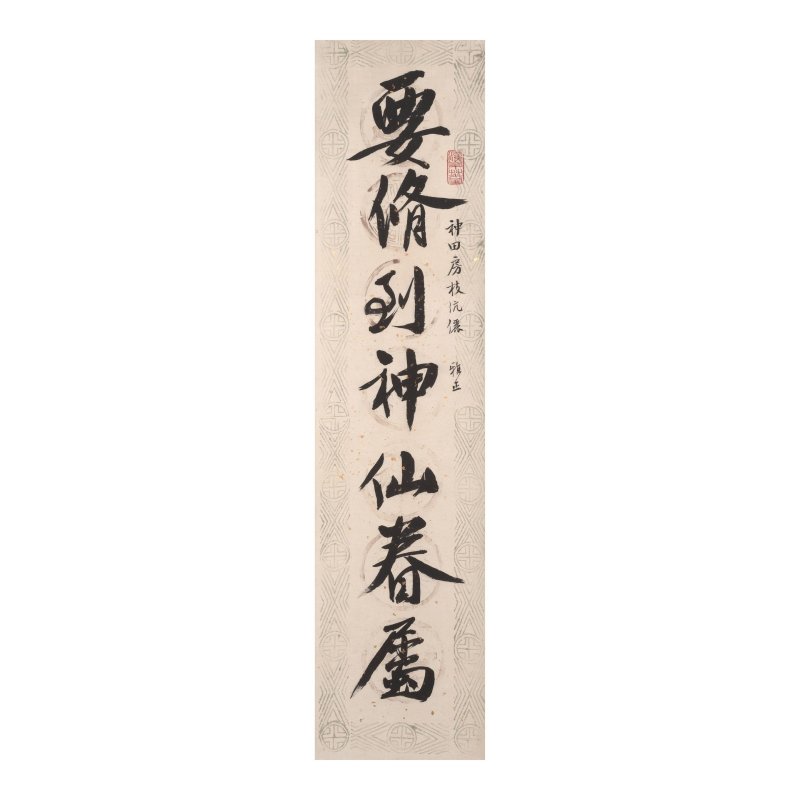 要脩到神仙眷屬
神田房枝伉儷 雅正